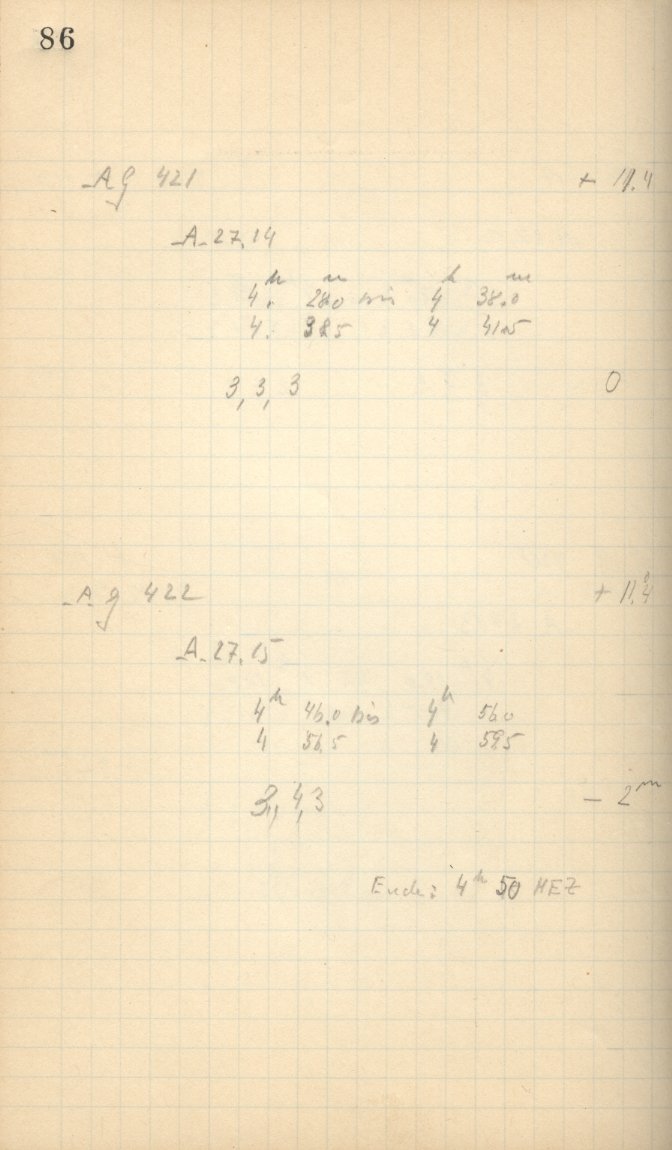 86
Ag 421 + 11.4
A. 27.14
4.h 28.0m bis 4h 38.0m
4. 38.5 4 41.5
3, 3, 3 0
Ag 422 + 11.4
A. 27.15
4h 46.0 bis 4h 56.0
4 56.5 4 59.5
3, 4, 3 – 2m
Ende: 4h 50 MEZ